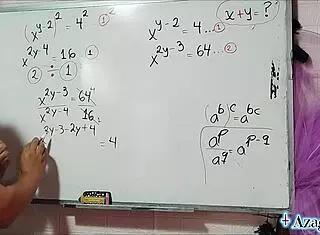 (x^{y-2})^2 = 4^2 ①^2
x^{y-2} = 4...①
x+y=?
x^{2y-4} = 16 ①
x^{2y-3} = 64...②
② ÷ ①
x^{2y-3}/x^{2y-4} = 64/16
(a^b)^c = a^{bc}
x^{2y-3-2y+4} = 4
a^p/a^q = a^{p-q}
+Azag